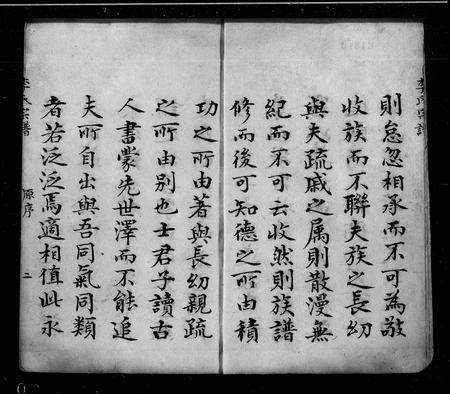 則怠忽相承而不可為敬
收族而不聯夫族之長幼
與夫疏戚之属則散漫無
紀而不可云收然則族譜
修而後可知德之所由積
功之所由著與長幼親疏
之所由別也士君子讀古
人書蒙先世澤而不能追
夫所自出與吾同氣同類
者若泛泛焉適相值此永
李氏宗譜
原序
二